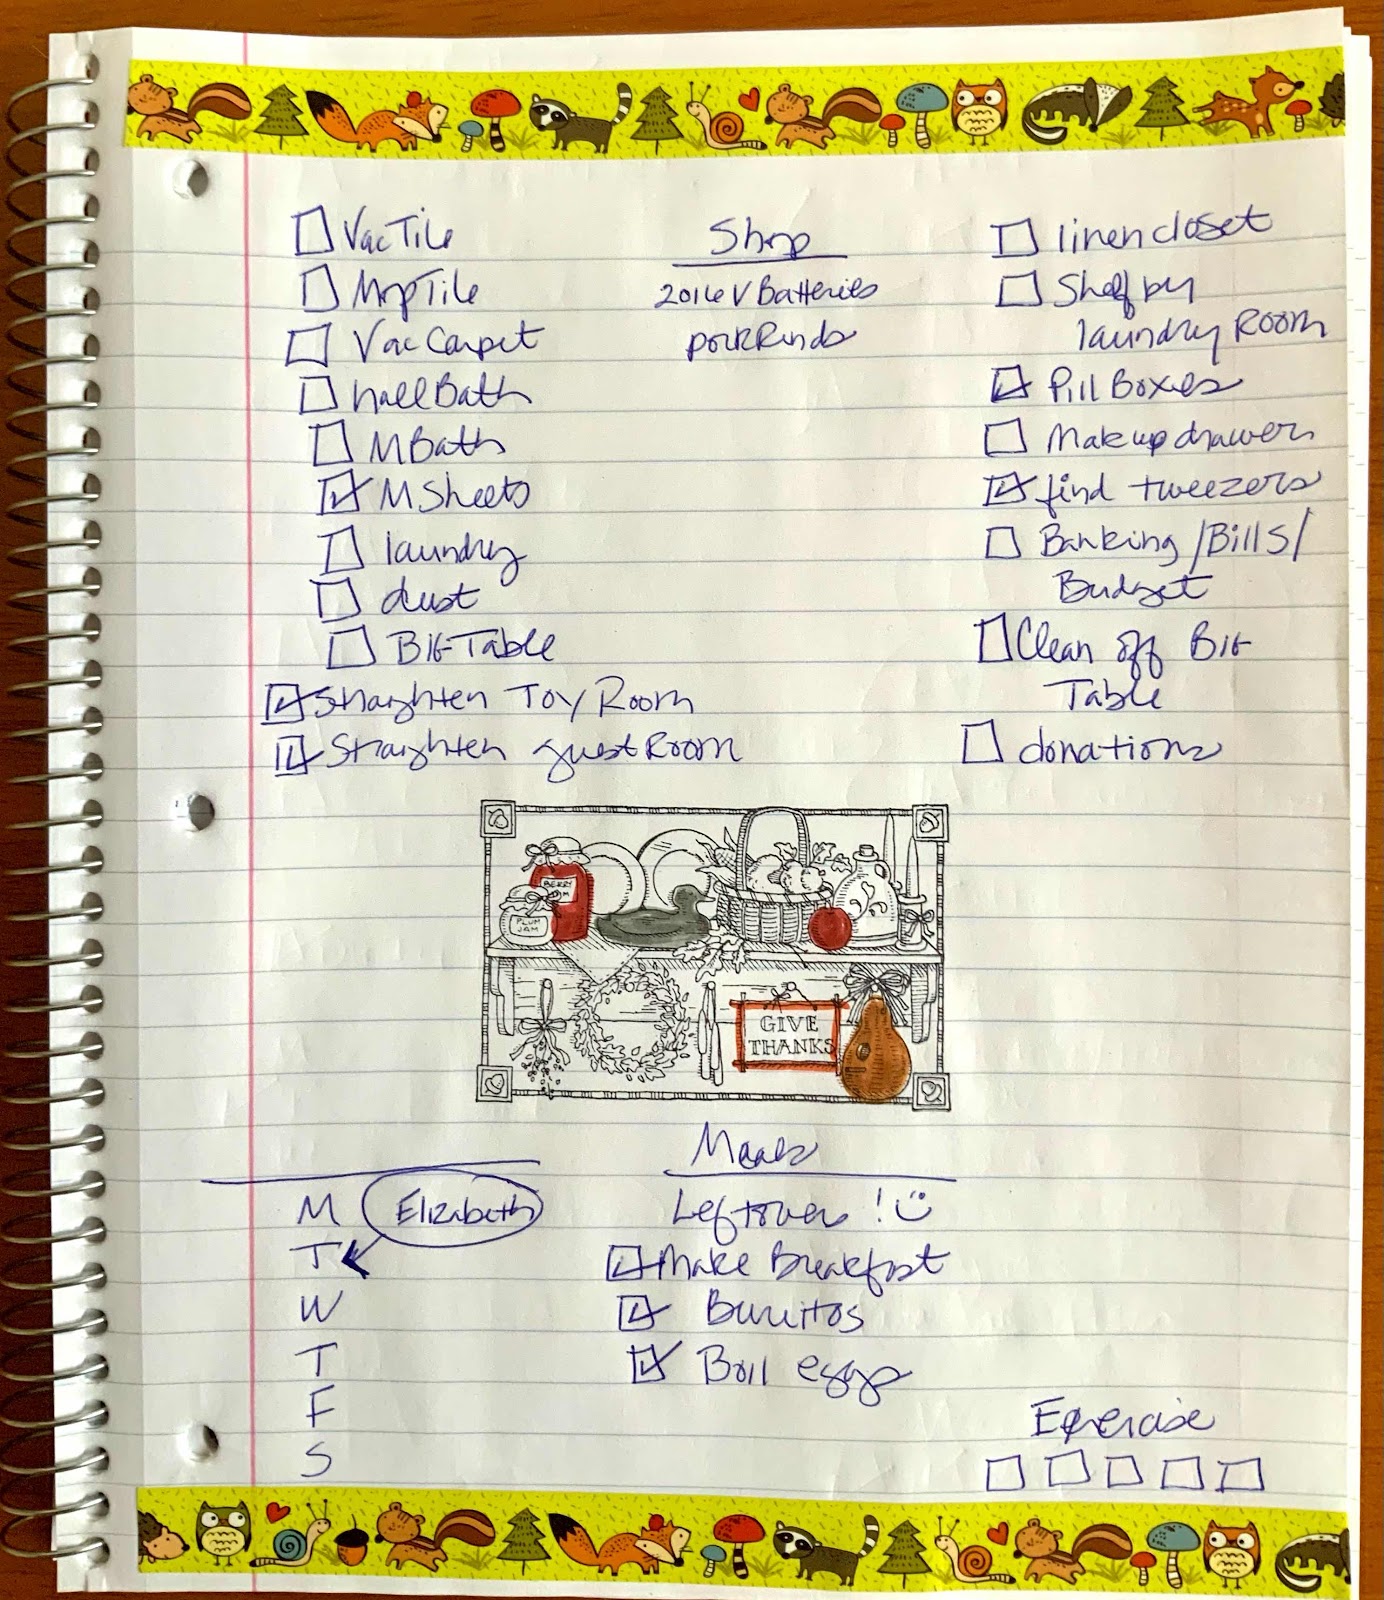 Vac Tile
Mop Tile
Vac Carpet
hall Bath
M Bath
M Sheets
laundry
dust
BIG Table
Straighten Toy Room
Straighten guest Room
Shop
2016 V Batteries
pork Rinds
linen closet
Shelf by
laundry Room
Pill Boxes
Makeup drawers
find tweezers
Banking / Bills /
Budget
Clean off BIG
Table
donations
BERRY
JAM
PLUM
JAM
GIVE
THANKS
M Elizabeth
T
W
T
F
S
Meals
Leftovers !
Make Breakfast
Burritos
Boil eggs
Exercise